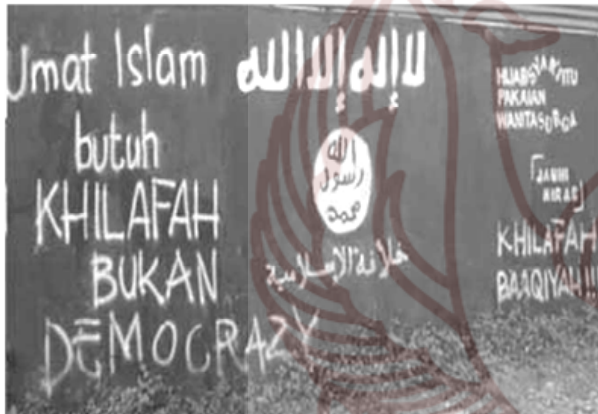 Umat Islam
butuh
KHILAFAH
BUKAN
DEMOCRAZY
لا إله إلا الله
الله
رسول
محمد
خلافة الإسلامية
HIJAB SYAR'I ITU
PAKAIAN
WANITA SURGA
KHILAFAH
BAAQIYAH!!!